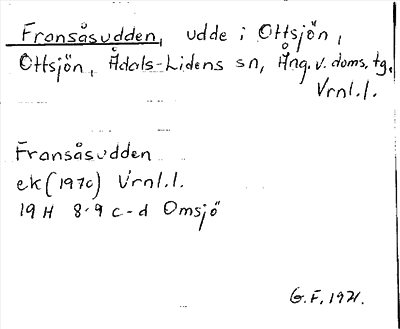 Fransåsudden, udde i Ottsjön,
Ottsjön, Ådals-Lidens sn, Ång. v. doms. tg.
Vrnl.l.
Fransåsudden
ek (1970) Vrnl.l.
19 H 8-9 c-d Omsjö
G.F, 1971.